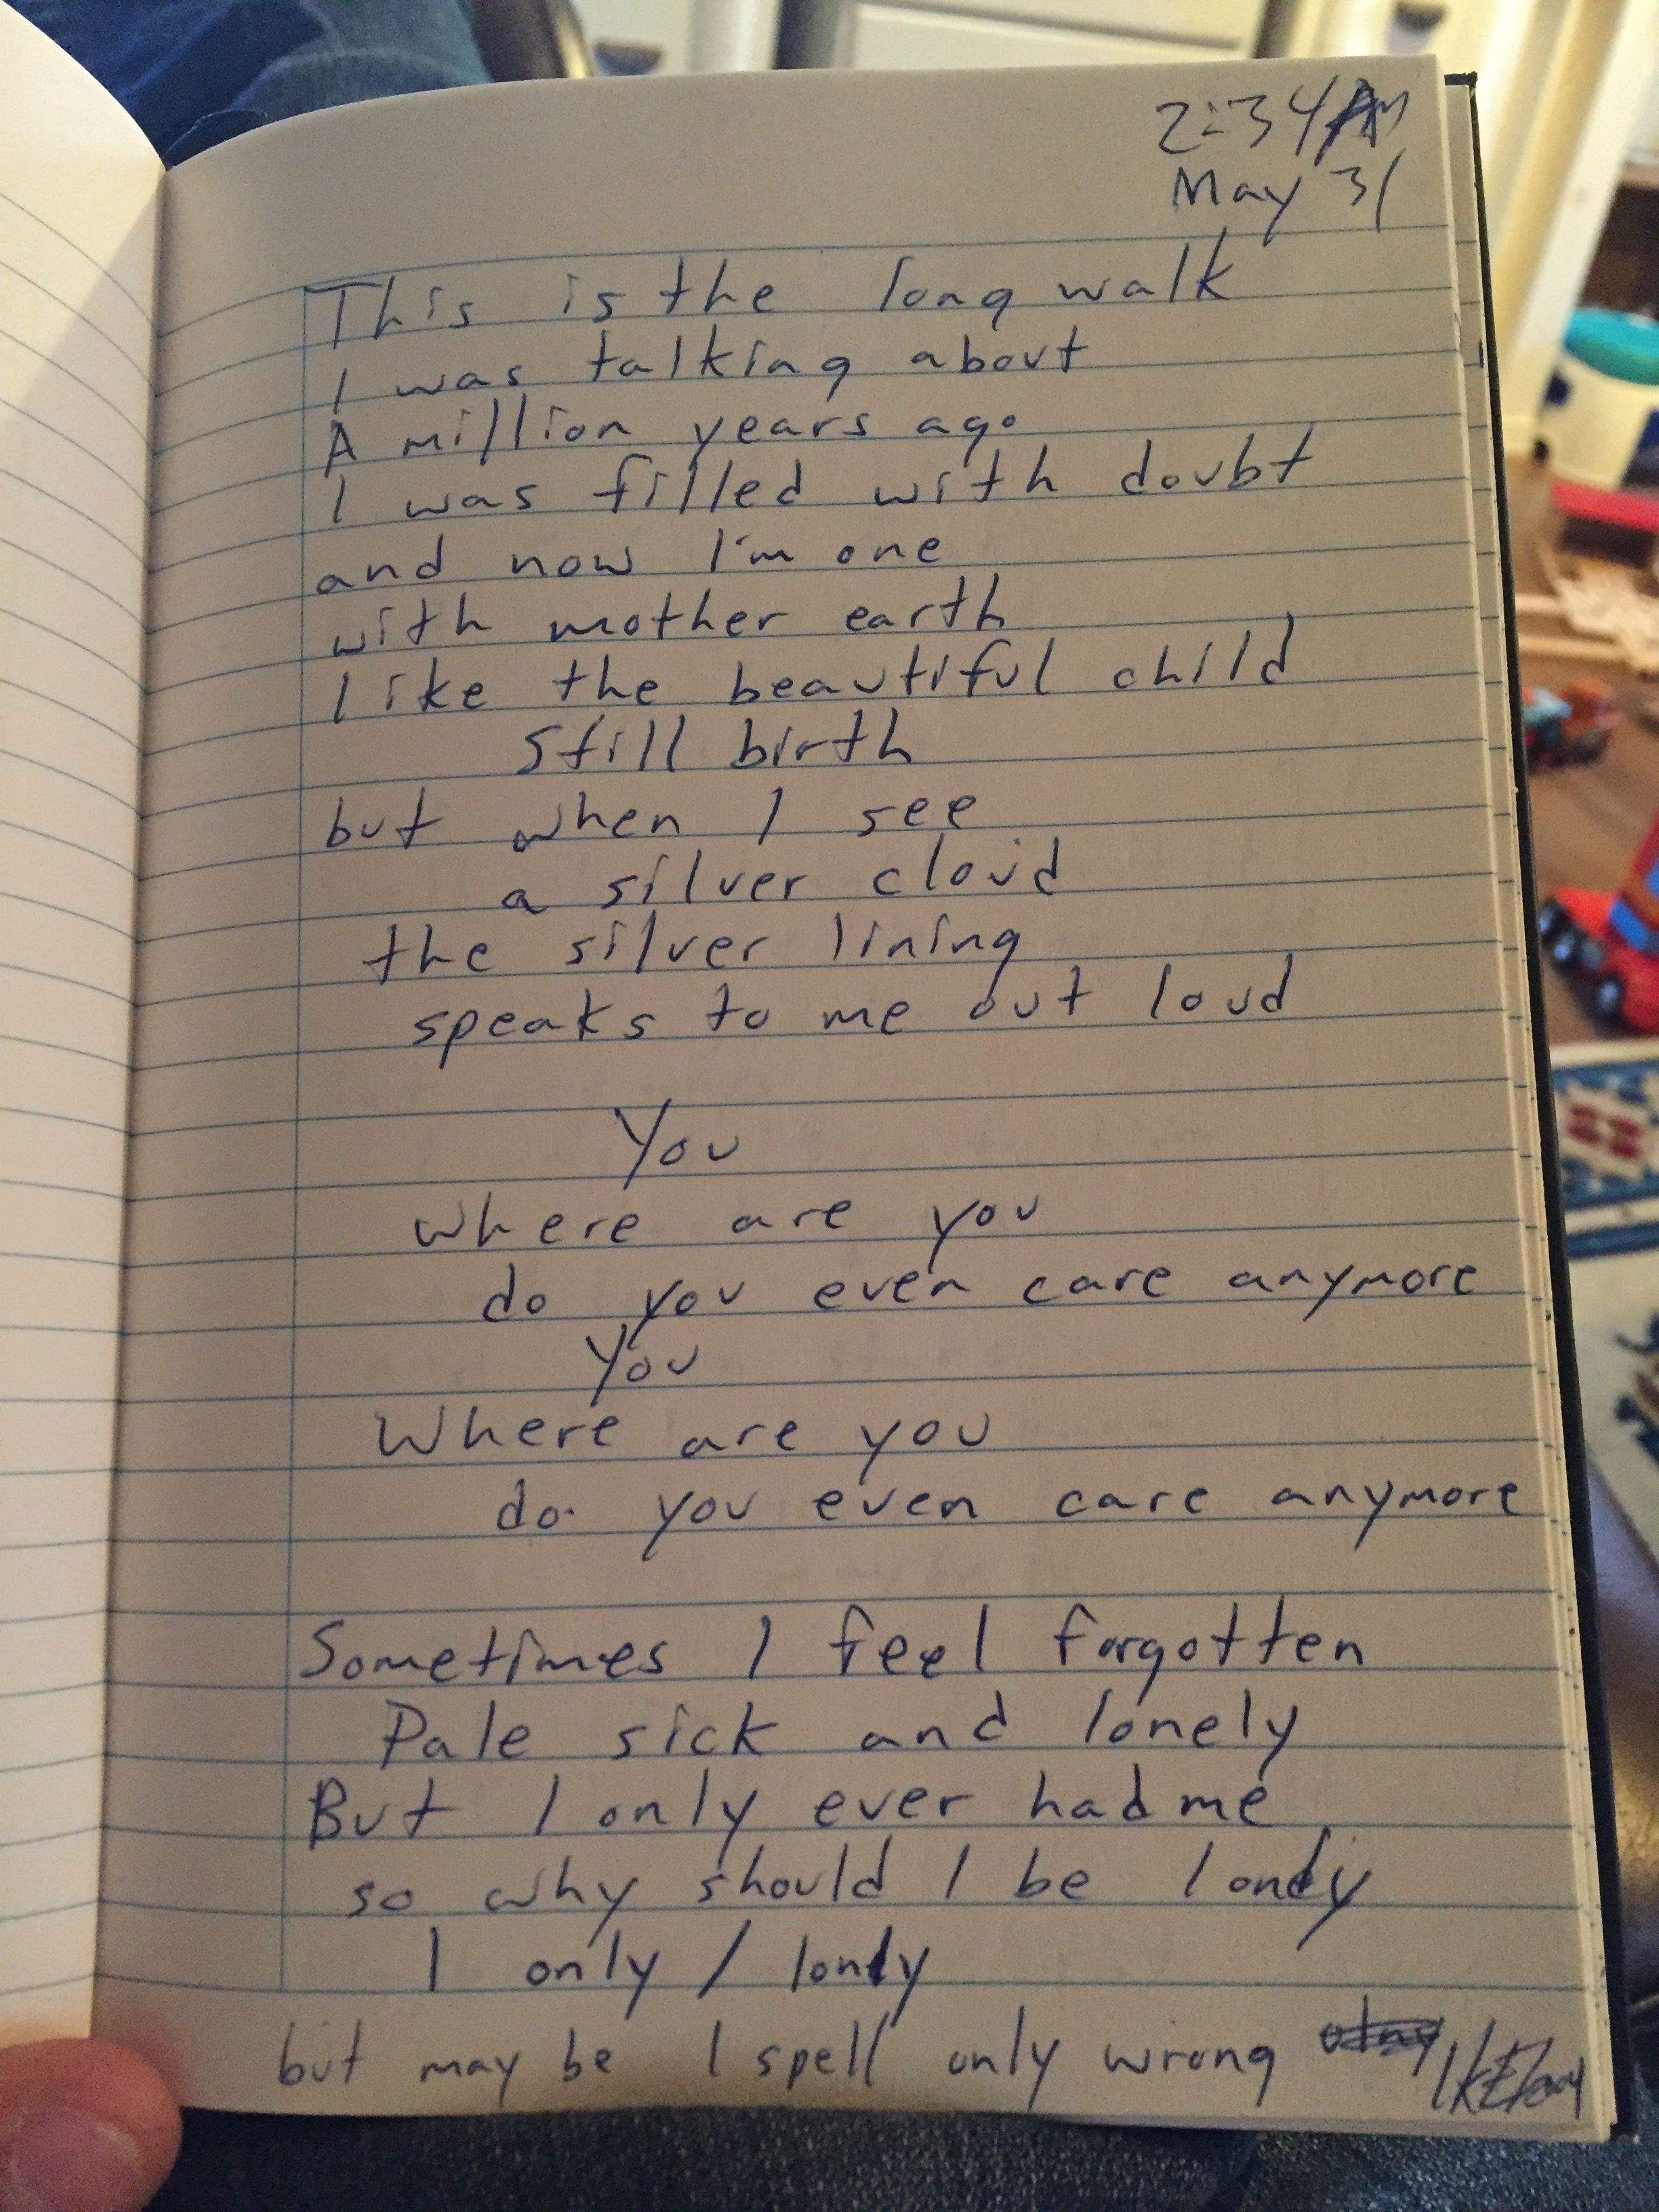 2:34AM
May 31
This is the long walk
I was talking about
A million years ago
I was filled with doubt
and now I'm one
with mother earth
like the beautiful child
still birth
but when I see
a silver cloud
the silver lining
speaks to me out loud
You
where are you
do you even care anymore
You
Where are you
do you even care anymore
Sometimes I feel forgotten
Pale sick and lonely
But I only ever had me
so why should I be lonely
I only / lonely
but may be I spell only wrong